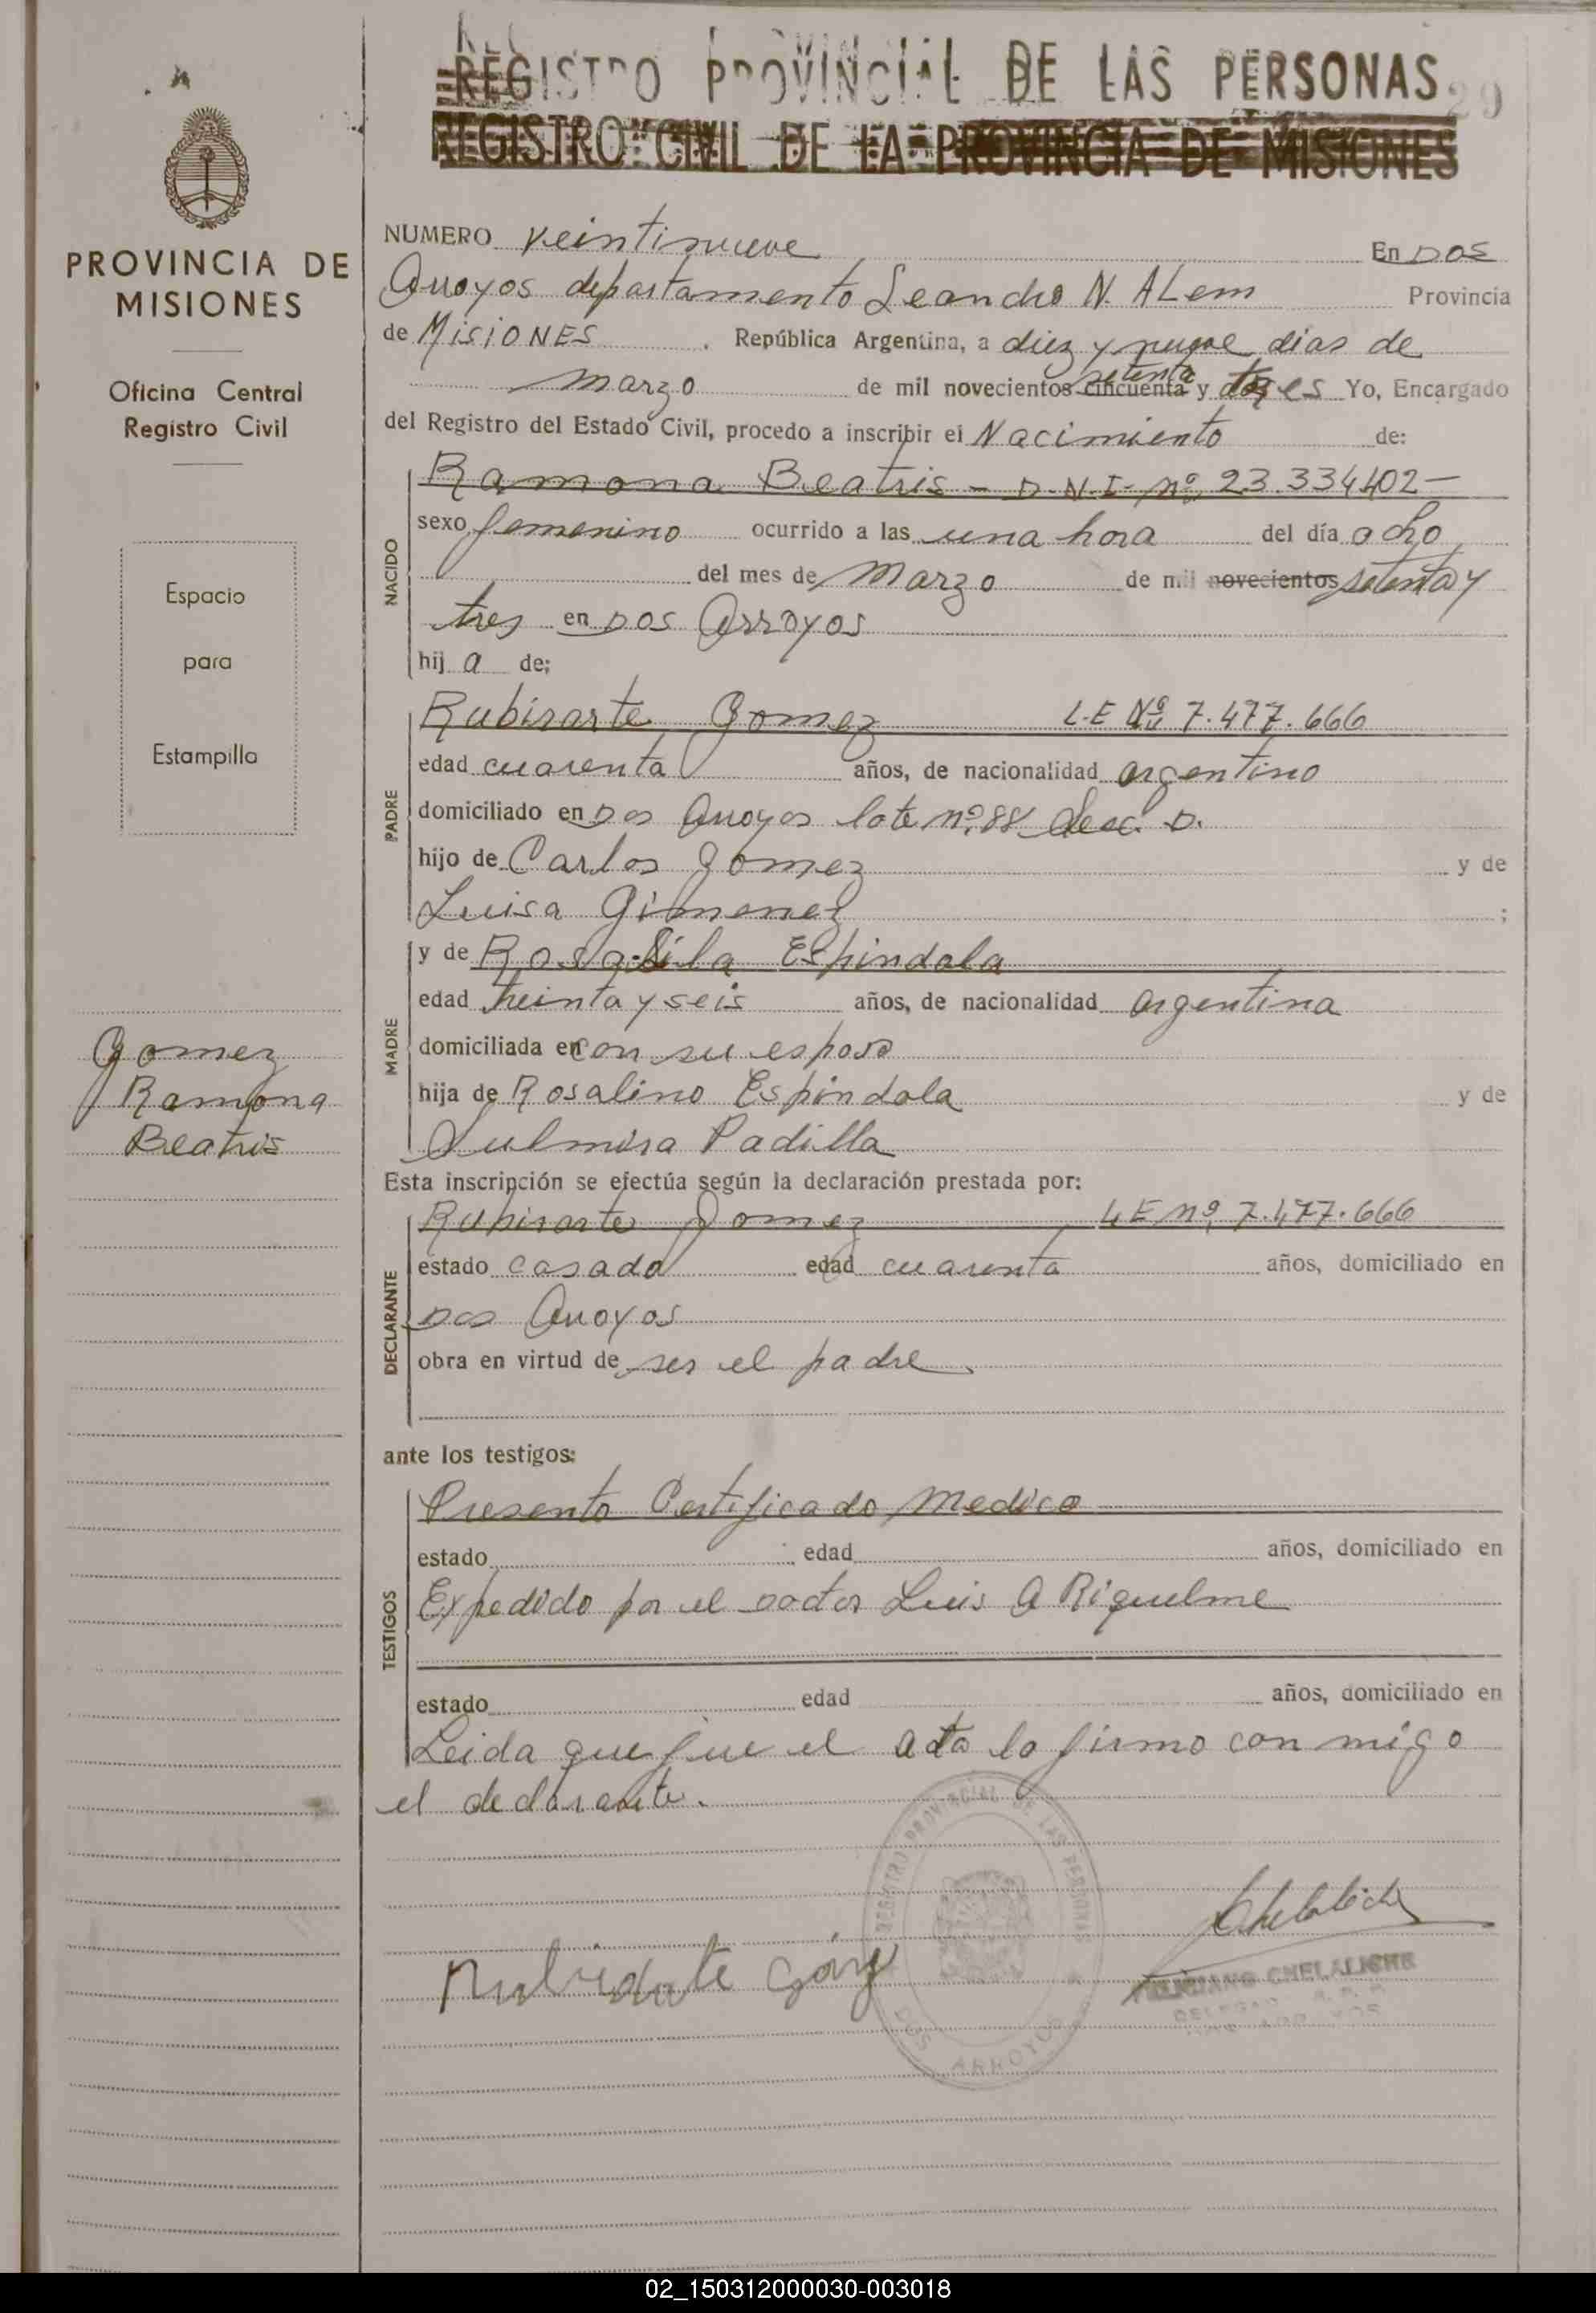 REGISTRO PROVINCIAL DE LAS PERSONAS
29
REGISTRO CIVIL DE LA PROVINCIA DE MISIONES
PROVINCIA DE
MISIONES
Oficina Central
Registro Civil
Espacio
para
Estampilla
Gomez
Ramona
Beatris
NUMERO veintinueve En DOS
Arroyos departamento Leandro N. ALem Provincia
de MisiONES . República Argentina, a diez y nueve dias de
marzo de mil novecientos cincuenta setenta y tres Yo, Encargado
del Registro del Estado Civil, procedo a inscribir el Nacimiento de:
NACIDO
Ramona Beatris - D.N.I- nº 23.334402-
sexo femenino ocurrido a las una hora del día ocho
del mes de Marzo de mil novecientos setenta y
tres en DOS Arroyos
hij a de;
PADRE
Rubirarte Gomez L.E Nº 7.477.666
edad cuarenta años, de nacionalidad argentino
domiciliado en Dos Arroyos lote nº 88 Secc. D.
hijo de Carlos Gomez y de
Luisa Gimenez ;
MADRE
y de Rosa Espindola
edad treinta y seis años, de nacionalidad argentina
domiciliada en con su esposo
hija de Rosalino Espindola y de
Padilla
Esta inscripción se efectúa según la declaración prestada por:
DECLARANTE
Rubirarte Gomez LE nº 7.477.666
estado casado edad cuarenta años, domiciliado en
Dos Arroyos
obra en virtud de ser el padre.
ante los testigos:
TESTIGOS
Presento Certificado Medico
estado edad años, domiciliado en
Expedido por el Doctor Luis A Riquelme
estado edad años, domiciliado en
Leida que fue el acta lo firmo con migo
el declarante.
REGISTRO PROVINCIAL DE LAS PERSONAS
DOS ARROYOS
Chelaliche
CHELALICHE
02_150312000030-003018